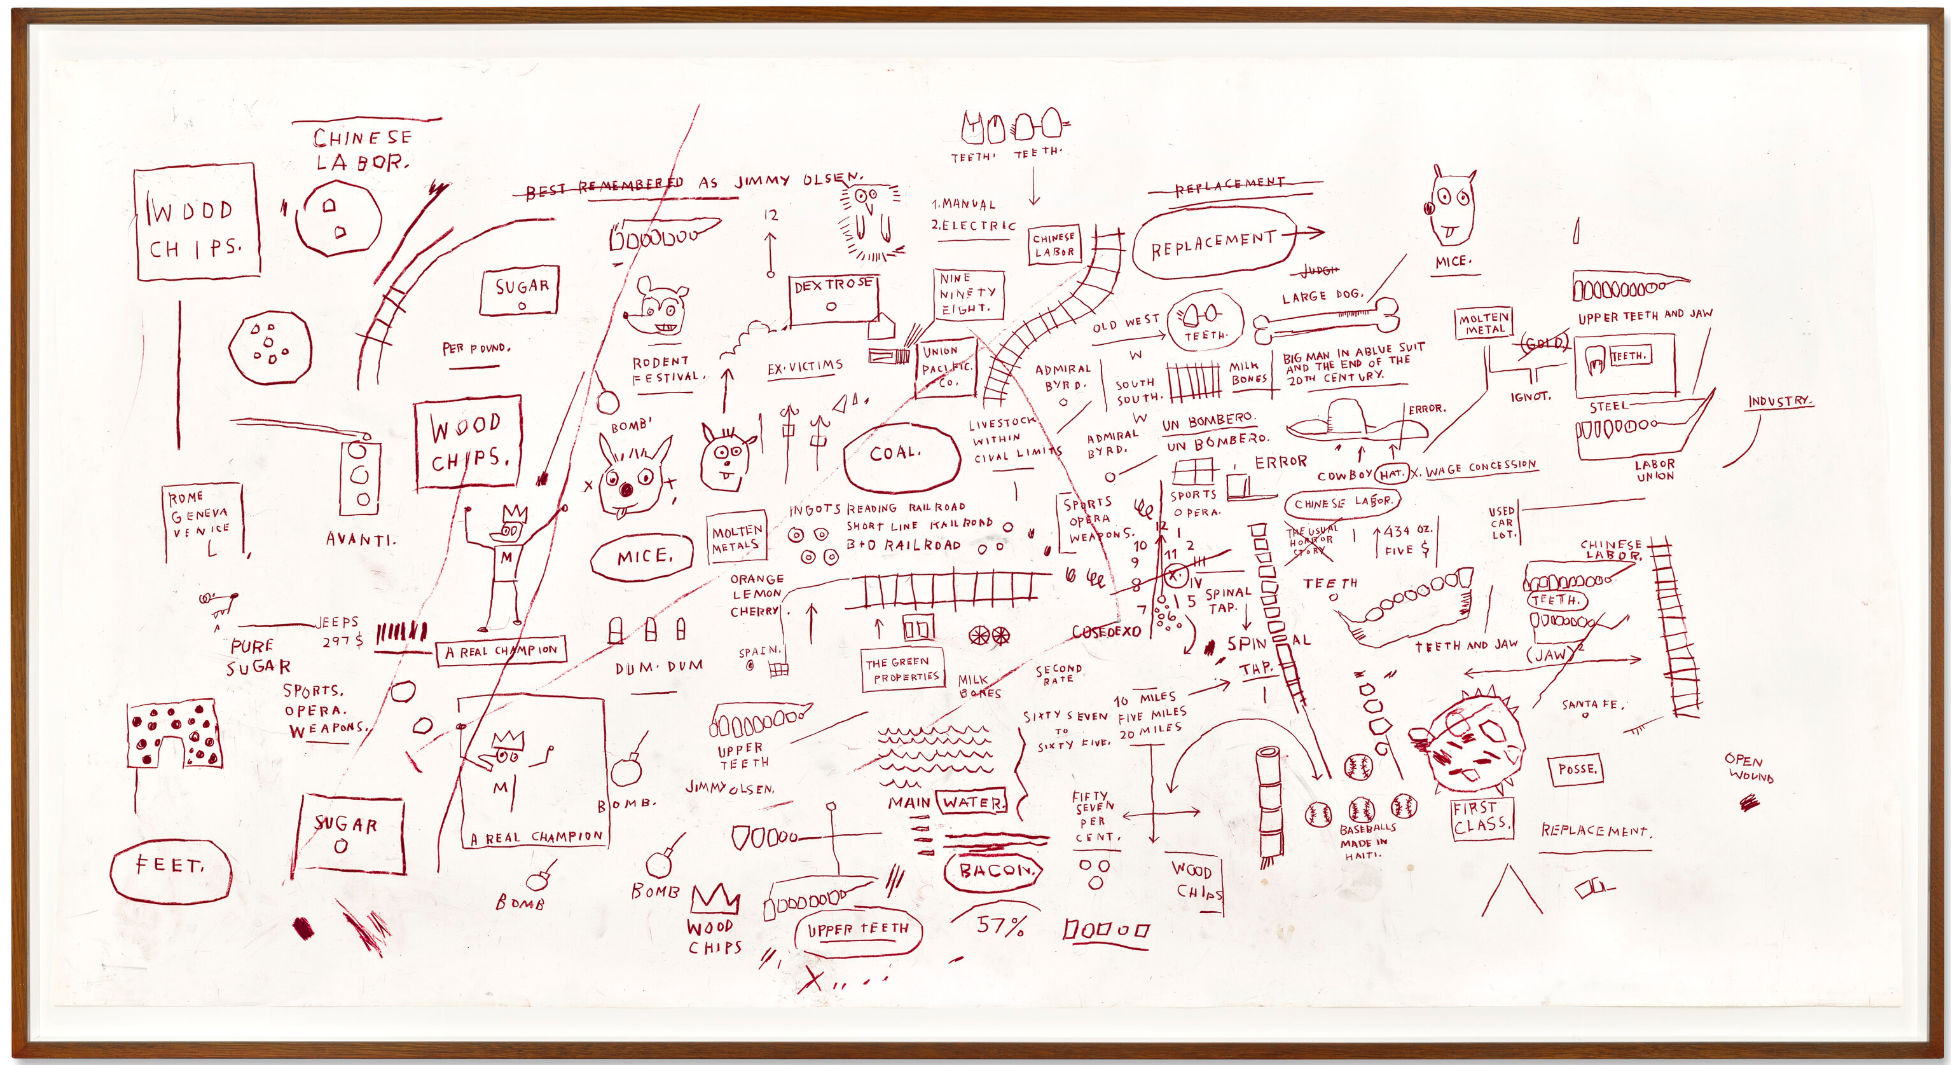 CHINESE
LABOR.
WOOD
CHIPS.
BEST REMEMBERED AS JIMMY OLSEN.
TEETH. TEETH.
1.MANUAL
2.ELECTRIC
CHINESE
LABOR
REPLACEMENT
REPLACEMENT
MICE.
12
SUGAR
DEXTROSE
NINE
NINETY
EIGHT.
LARGE DOG.
PER POUND.
RODENT
FESTIVAL.
EX-VICTIMS
UNION
PACIFIC.
CO.
OLD WEST
TEETH.
MOLTEN
METAL
(GOLD)
UPPER TEETH AND JAW
TEETH.
IGNOT.
W
ADMIRAL
BYRD.
SOUTH
SOUTH.
W
MILK
BONES
BIG MAN IN A BLUE SUIT
AND THE END OF THE
20TH CENTURY.
ERROR.
STEEL
INDUSTRY.
LABOR
UNION
WOOD
CHIPS.
BOMB'
COAL.
LIVESTOCK
WITHIN
CIVAL LIMITS
ADMIRAL
BYRD.
UN BOMBERO.
UN BOMBERO.
ERROR
COWBOY HAT. X. WAGE CONCESSION
ROME
GENEVA
VENICE
L
AVANTI.
M
MICE.
MOLTEN
METALS
INGOTS
READING RAILROAD
SHORT LINE RAILROAD
B+O RAILROAD
SPORTS
OPERA
WEAPONS.
SPORTS
OPERA.
CHINESE LABOR.
THE USUAL
HORROR
STORY
434 OZ.
FIVE $
USED
CAR
LOT.
CHINESE
LABOR.
12 1
2
III
IV
5
6
7
8
9
10
11
5.
X.
ORANGE
LEMON
CHERRY.
SPINAL
TAP.
TEETH
TEETH.
COSEDEXO
SPINAL
TAP.
TEETH AND JAW
(JAW)2
JEEPS
297 $
PURE
SUGAR
A REAL CHAMPION
DUM-DUM
SPAIN.
THE GREEN
PROPERTIES
MILK
BONES
SECOND
RATE
SPORTS.
OPERA.
WEAPONS.
10 MILES
FIVE MILES
20 MILES
SIXTY SEVEN
TO
SIXTY FIVE.
SANTA FE.
UPPER
TEETH
JIMMY OLSEN.
M
A REAL CHAMPION
BOMB.
MAIN WATER.
FIFTY
SEVEN
PER
CENT.
POSSE.
OPEN
WOUND
FIRST
CLASS.
BASEBALLS
MADE IN
HAITI.
REPLACEMENT.
SUGAR
FEET.
BOMB
BOMB
BACON.
WOOD
CHIPS
WOOD
CHIPS
UPPER TEETH
57%
X